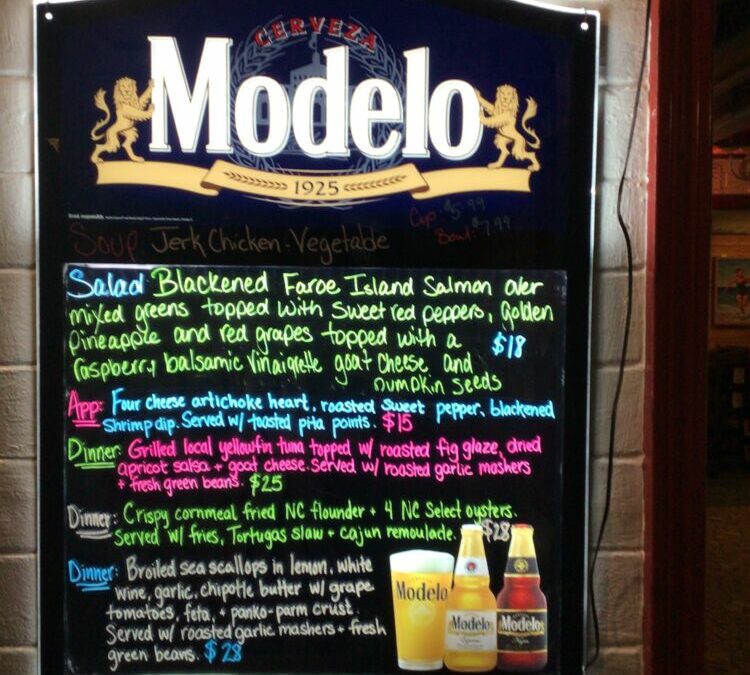 CERVEZA
Modelo
1925
Soup Jerk Chicken-Vegetable
Cup-$5.99
Bowl-$7.99
Salad Blackened Faroe Island Salmon over
mixed greens topped with sweet red peppers, golden
pineapple and red grapes topped with a
raspberry balsamic vinaigrette goat cheese and
pumpkin seeds
$18
App: Four cheese artichoke heart, roasted sweet pepper, blackened
shrimp dip. Served w/ toasted pita points. $15
Dinner: Grilled local yellowfin tuna topped w/ roasted fig glaze, dried
apricot salsa + goat cheese. Served w/ roasted garlic mashers
+ fresh green beans. $25
Dinner: Crispy cornmeal fried NC flounder + 4 NC Select oysters.
Served w/ fries, Tortugas slaw + cajun remoulade. $28
Dinner: Broiled sea scallops in lemon, white
wine, garlic, chipotle butter w/ grape
tomatoes, feta, + panko-parm crust.
Served w/ roasted garlic mashers + fresh
green beans. $28
Modelo
Modelo
Modelo